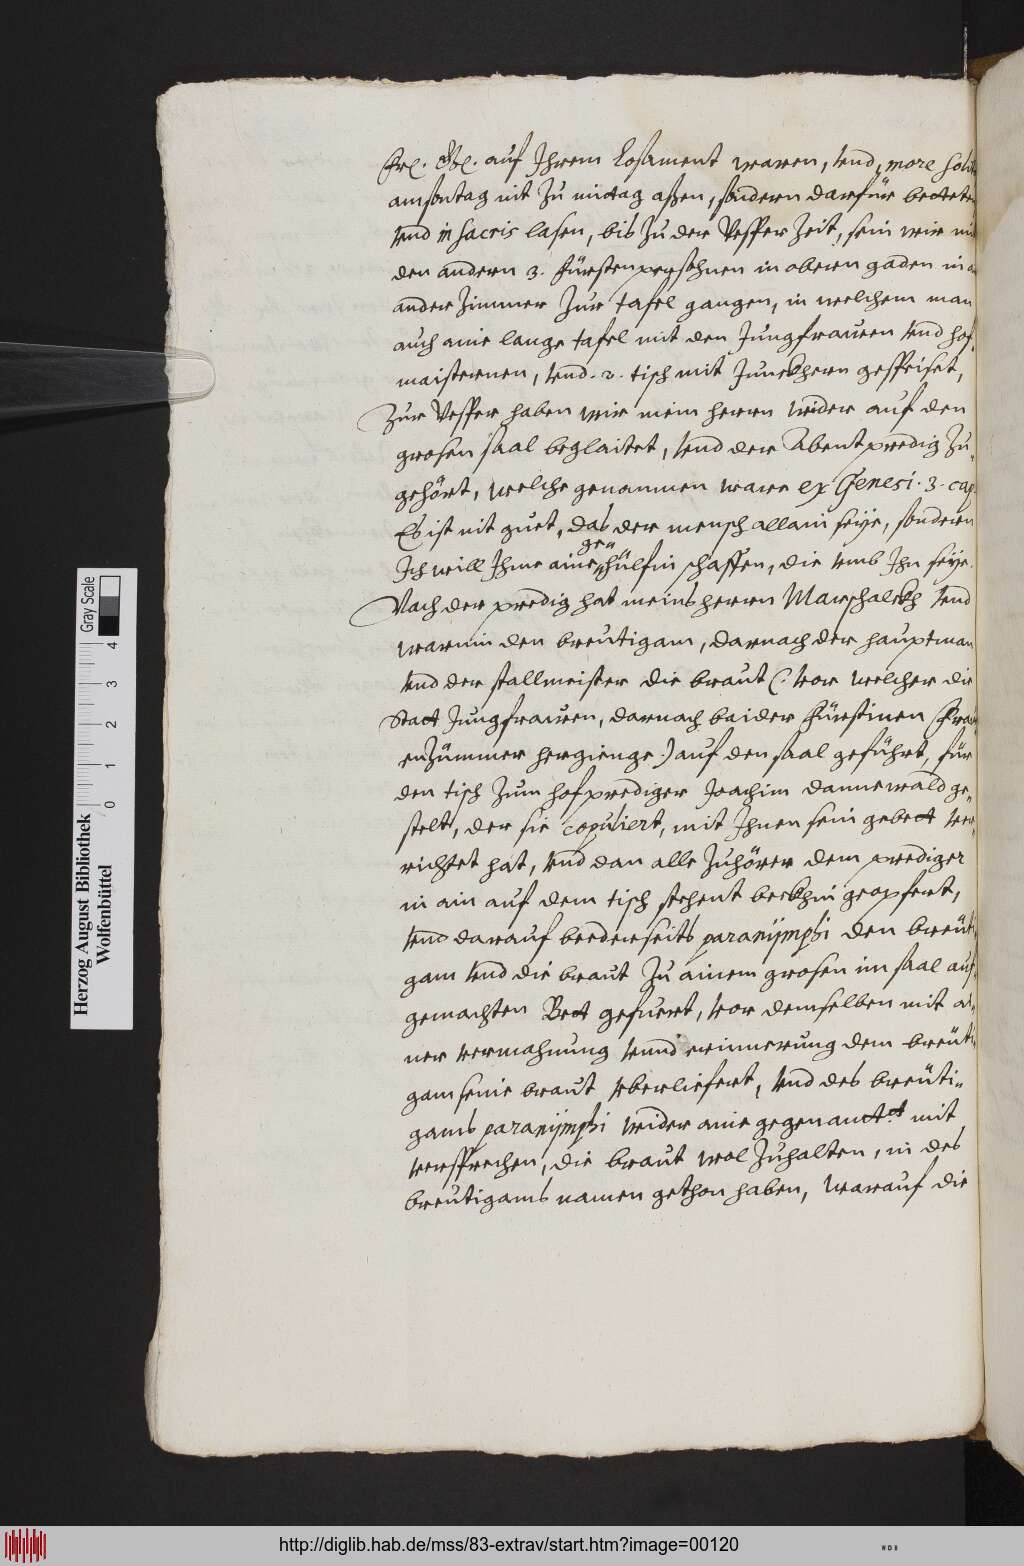 Frl. Gn. auf Ihrem Losament waren, vnd, more solito
am sontag nit zu mittag aßen, sondern darfür beeteten
vnd in sacris lasen, bis zu der Vesper Zeit, sein wir mit
den andern 3. Fürstenpersohnen in obern gaden in ain
ander Zimmer zur tafel gangen, in welchem man
auch aine lange tafel mit den Jungfrauen vnd hof,
maisternen, vnd .2. tisch mit Junckhern gespeiset,
Zur Vesper haben wir mein herrn wider auf den
grosen saal beglaitet, vnd der Abentpredig zu,
gehört, welche genommen ware ex Genesi .3. cap.
Es ist nit guet, das der mensch allain seye, sondern
Ich will Ihme aine gehülfin schaffen, die vmb Ihn seye.
Nach der predig hat meins herrn Marschalckh vnd
den breutigam, darnach der hauptman
vnd der stallmeister die braut (. vor welcher die
Statt Jungfrauen, darnach baider Fürstinen Frau
enzümmer hergienge .) auf den saal geführt, für
den tisch zum hofprediger Joachim Dannewald ge,
stelt, der sie copuliert, mit Ihnen sein gebett ver,
richtet hat, vnd dan alle Zuhörer dem prediger
in ain auf dem tisch stehent beckhin geopfert,
vnd darauf beederseits paranymphi den breüti
gam vnd die braut zu ainem grosen im saal auf,
gemachten Bett gefuert, vor demselben mit ai
ner vermahnung vnnd erinnerung dem breüti
gam seine braut vberliefert, vnd des breüti,
gams paranymphi wider aine gegenantt.t mit
versprechen, die braut wol zuhalten, in des
breutigams namen gethon haben, warauf die
Herzog August Bibliothek
Wolfenbüttel
Gray Scale
0 1 2 3 4
http://diglib.hab.de/mss/83-extrav/start.htm?image=00120